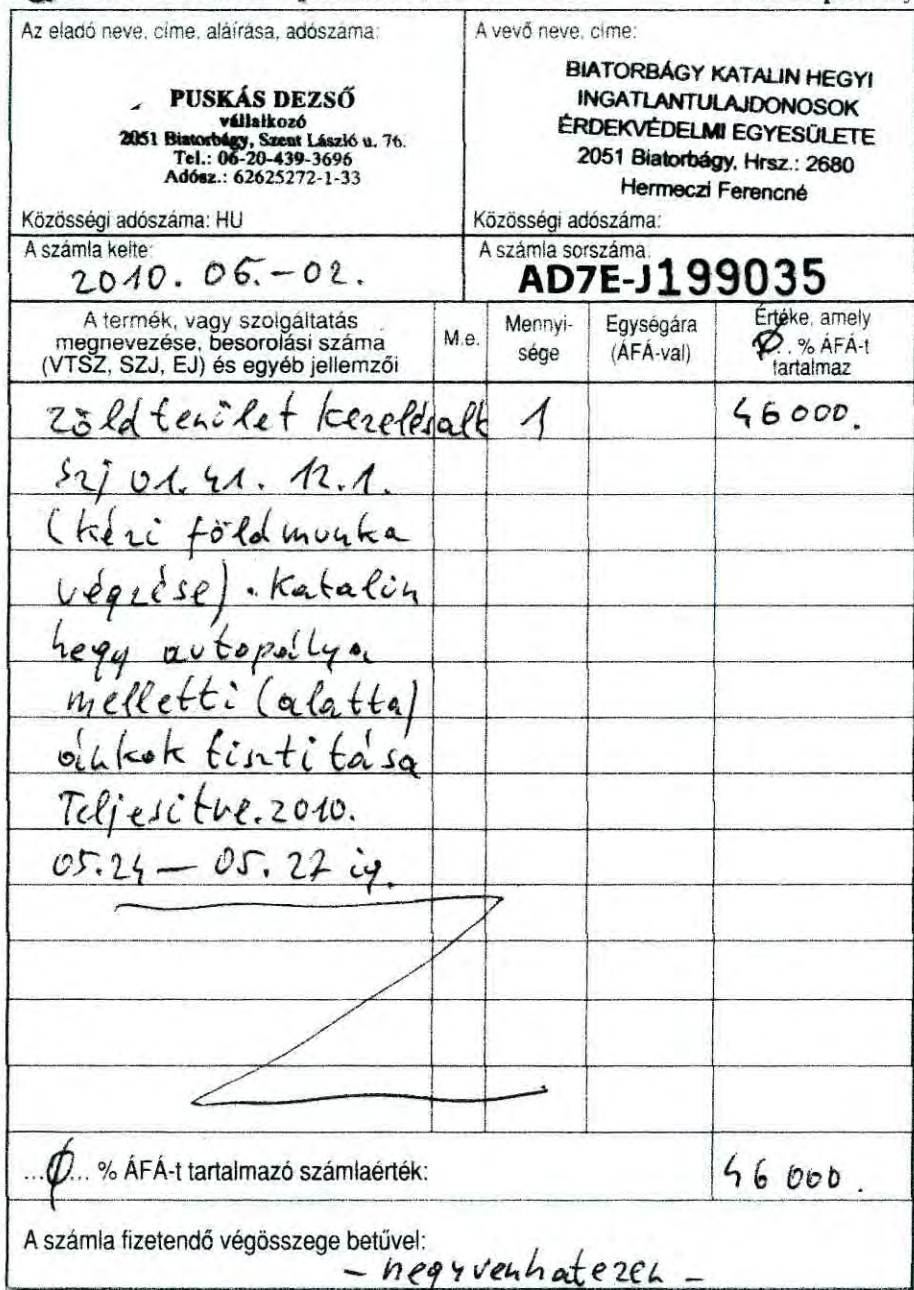 Az eladó neve, címe, aláírása, adószáma:
PUSKÁS DEZSŐ
vállalkozó
2051 Biatorbágy, Szent László u. 76.
Tel.: 06-20-439-3696
Adósz.: 62625272-1-33
Közösségi adószáma: HU
A vevő neve, címe:
BIATORBÁGY KATALIN HEGYI
INGATLANTULAJDONOSOK
ÉRDEKVÉDELMI EGYESÜLETE
2051 Biatorbágy, Hrsz.: 2680
Hermeczi Ferencné
Közösségi adószáma:
A számla kelte:
2010. 06.-02.
A számla sorszáma:
AD7E-J199035
A termék, vagy szolgáltatás
megnevezése, besorolási száma
(VTSZ, SZJ, EJ) és egyéb jellemzői
M.e.
Mennyi-
sége
Egységára
(ÁFÁ-val)
Értéke, amely
Ø.. % ÁFÁ-t
tartalmaz
zöldterület kezelés alt 1 46000.
szj 01.41. 12.1.
(kézi földmunka
végzése). Katalin
hegy autopálya
melletti (alatta)
árkok tisztitása
Teljesitve. 2010.
05.24 — 05.27 ig.
...Ø... % ÁFÁ-t tartalmazó számlaérték: 46 000.
A számla fizetendő végösszege betűvel:
- negyvenhatezer -